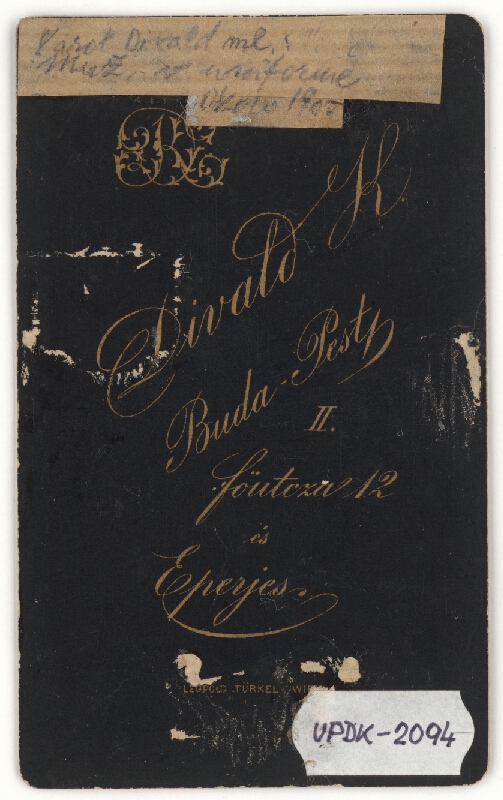 Karol Divald ml.:
Muž v uniforme
Okolo 1900
Divald K.
Buda-Pest,
II.
főutcza 12
és
Eperjes.
LEOPOLD TÜRKEL, WIEN
UPDK-2094